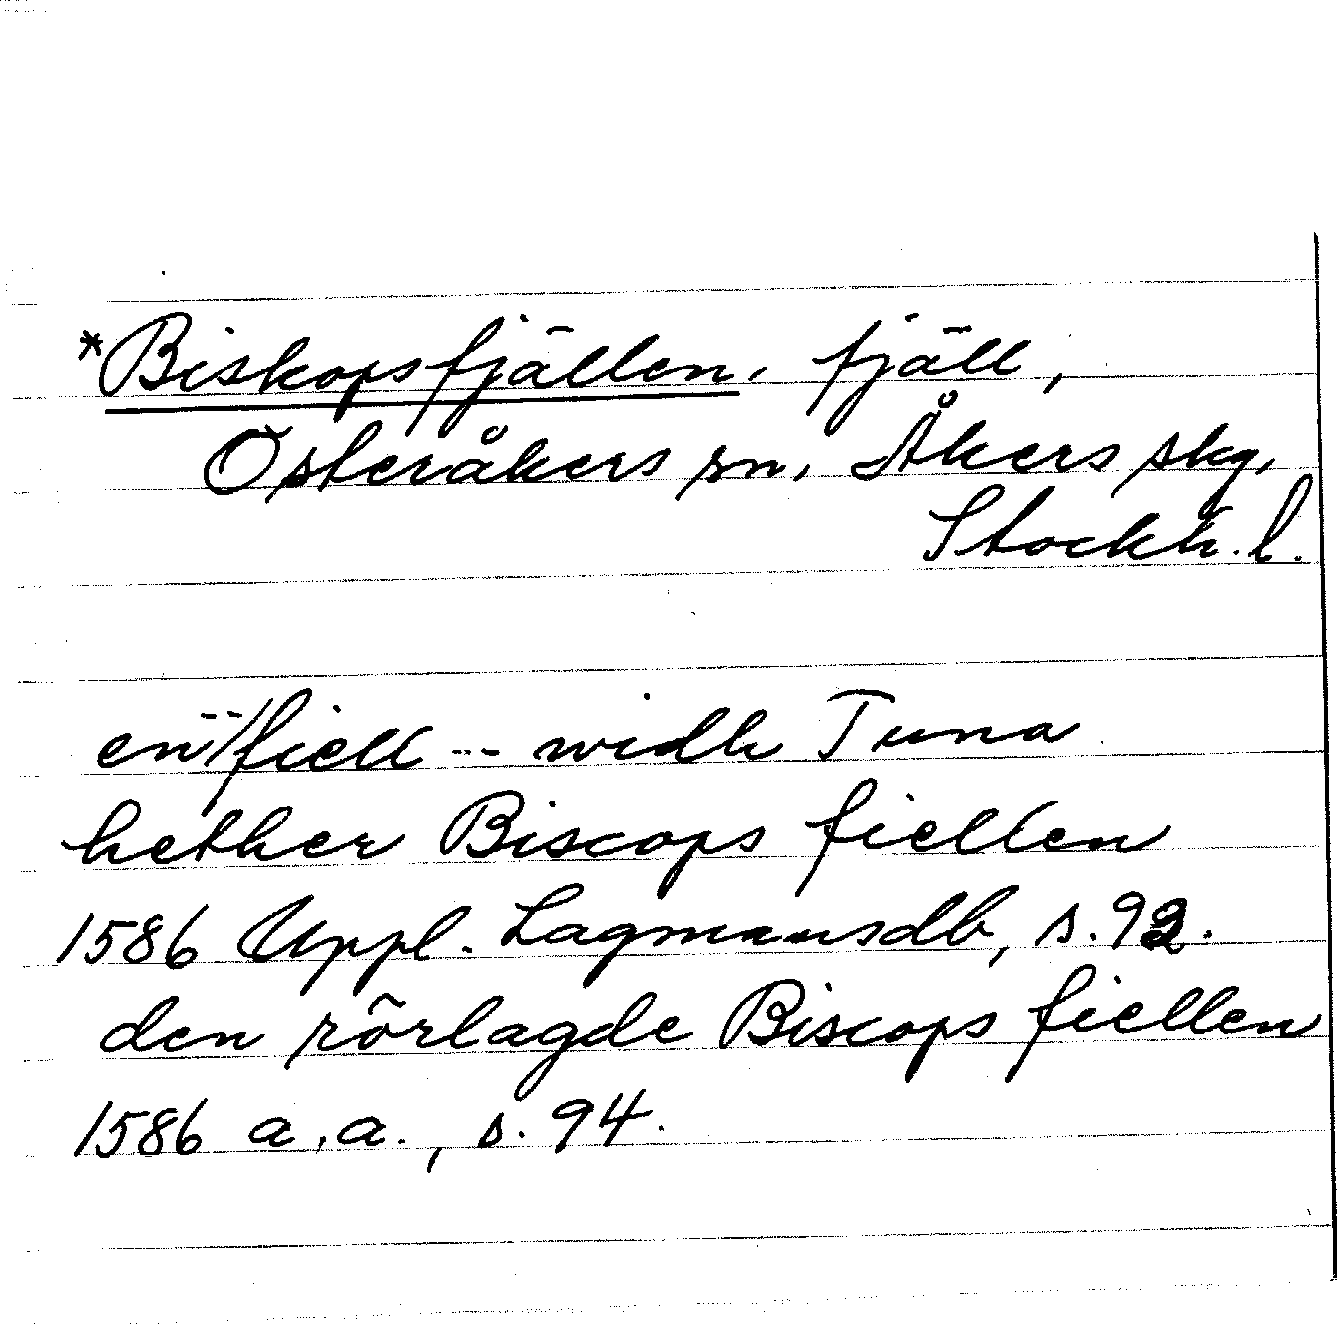 *Biskopsfjällen, fjäll,
Österåkers sn, Åkers skg,
Stockh. l.
en fiell --- widh Tuna
hether Biscops fiellen
1586 Uppl. Lagmansdb, s. 92.
den rörlagde Biscops fiellen
1586 a.a., s. 94.